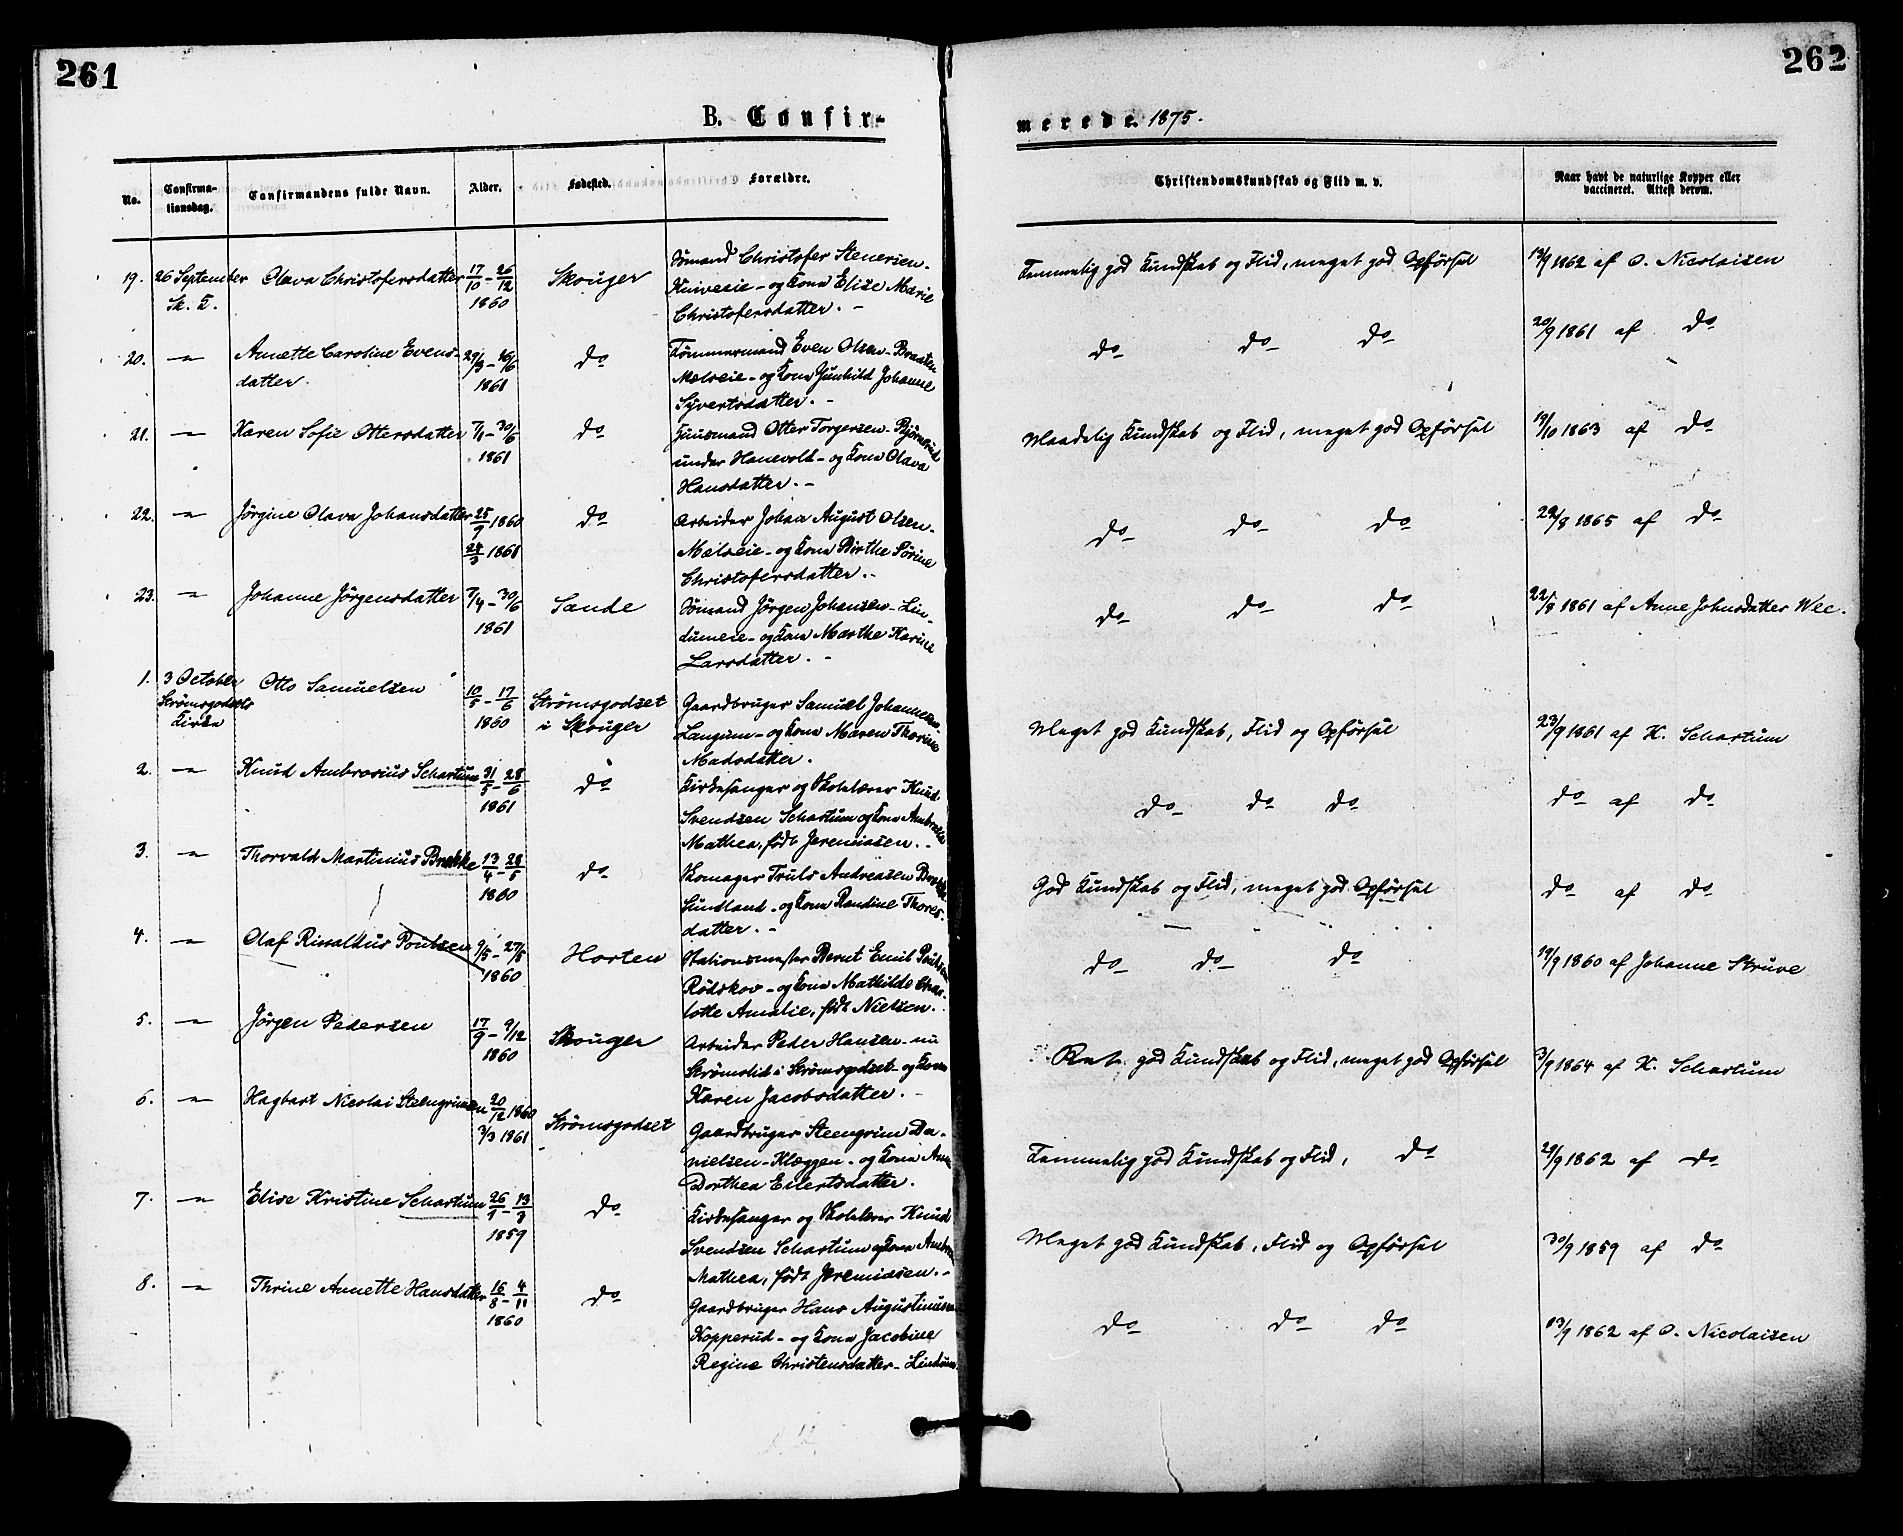 261
262
B. Confir-
merede. 1875.
No.
Confirma-
tionsdag.
Confirmandens fulde Navn.
Alder.
Fødested.
Forældre.
Christendomskundskab og Flid m. v.
Naar havt de naturlige Kopper eller
vaccineret. Attest derom.
19. 26 September Olava Christofersdatter 17/10 - 26/12 Skouger Sømand Christofer Stenersen - Temmelig god Kundskab og Flid, meget god Opførsel 19/9 1862 af O. Nicolaisen
Sk. K. 1860 Kniveeie - og Kone Elise Marie
Christofersdatter. -
20. - " - Anette Caroline Evens- 29/3 - 26/6 do Tømmermand Even Olsen - Braaten do do do 20/9 1861 af do
datter. 1861 Mælseie - og Kone Gunhild Johanne
Syvertsdatter. -
21. - " - Karen Sofie Ottersdatter 7/1 - 30/6 do Huusmand Otter Torgersen - Bjørnerud Maadelig Kundskab og Flid, meget god Opførsel 19/10 1863 af do
1861 under Hanevold - og Kone Olava
Hansdatter. -
22. - " - Jørgine Olava Johansdatter 25/9 1860 do Arbeider Johan August Olsen - do do do 22/8 1865 af do
24/3 1861 Mælseie - og Kone Birthe Sørine
Christofersdatter. -
23. - " - Johanne Jørgensdatter 7/4 - 30/6 Sande Sømand Jørgen Johansen - Lin- do do do 22/8 1861 af Anne Johnsdatter Wee.
1861 dumeie - og Kone Marthe Karine
Larsdatter. -
1. 3 October Otto Samuelsen 10/5 - 17/6 Strømsgodset Gaardbruger Samuel Johannesen Meget god Kundskab, Flid og Opførsel 23/9 1861 af K. Schartum
Strømsgodsets 1860 i Skouger Langum - og Kone Maren Thorine
Kirke Madsdatter.
2. - " - Knud Ambrosius Schartum 31/5 - 28/6 do Kirkesanger og Skolelærer Knud do do do do af do
1861 Svendsen Schartum og Kone Ambrosia
Mathea, født Jeremiasen. -
3. - " - Thorvald Martinius Brække 13/4 - 28/5 do Skomager Truls Andreasen God Kundskab og Flid, meget god Opførsel do af do
1860 Sundland - og Kone Randine Thores-
datter. -
4. - " - Olaf Rinaldus Poulsen 9/5 - 27/5 Horten Stationsmester Bernt Emil Poulsen do do do 19/9 1860 af Johanne Struve
1860 Rødskov - og Kone Mathilde Char-
lotte Amalie, født Nielsen.
5. - " - Jørgen Pedersen 17/9 - 9/12 Skouger Arbeider Peder Hansen - nu Ret god Kundskab og Flid, meget god Opførsel 3/9 1864 af K. Schartum
1860 Strømslid i Strømsgodset - og Kone
Karen Jacobsdatter. -
6. - " - Hagbart Nicolai Steengrimsen 20/12 1860 Strømsgodset Gaardbruger Steengrim Da- Temmelig god Kundskab og Flid, do 29/9 1862 af do
3/3 1861 nielsen - Klæggen - og Kone Anne
Dorthea Eilertsdatter.
7. - " - Elise Kristine Schartum 26/1 - 13/3 do Kirkesanger og Skolelærer Knud Meget god Kundskab, Flid og Opførsel 30/9 1859 af do
1859 Svendsen Schartum og Kone
Mathea, født Jeremiasen. -
8. - " - Thrine Annette Hansdatter 16/8 - 4/11 do Gaardbruger Hans Augustinusen do do do 13/9 1862 af O. Nicolaisen
1860 Kopperud - og Kone Jacobine
Regine Christensdatter - Lindum